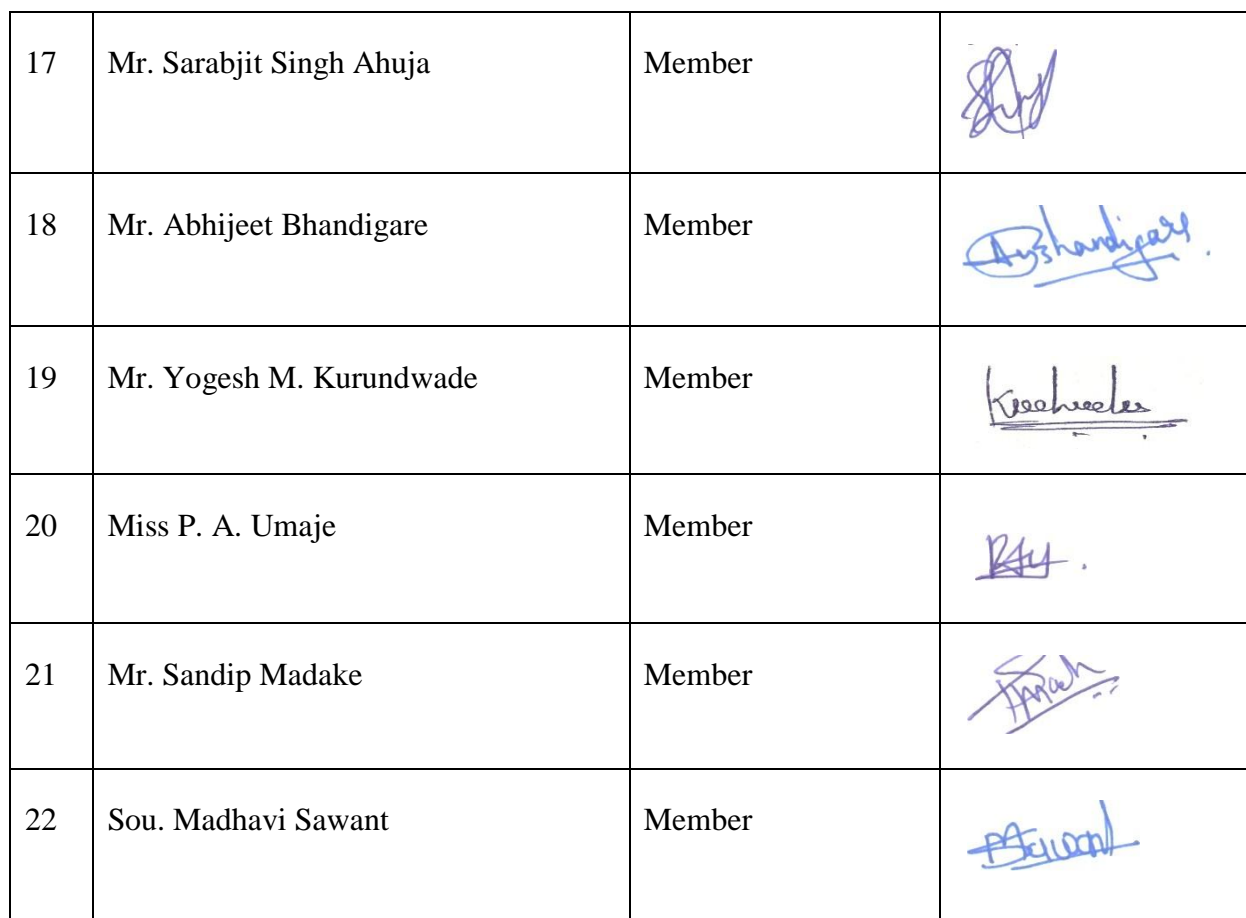 17 Mr. Sarabjit Singh Ahuja Member
18 Mr. Abhijeet Bhandigare Member
19 Mr. Yogesh M. Kurundwade Member
20 Miss P. A. Umaje Member
21 Mr. Sandip Madake Member
22 Sou. Madhavi Sawant Member